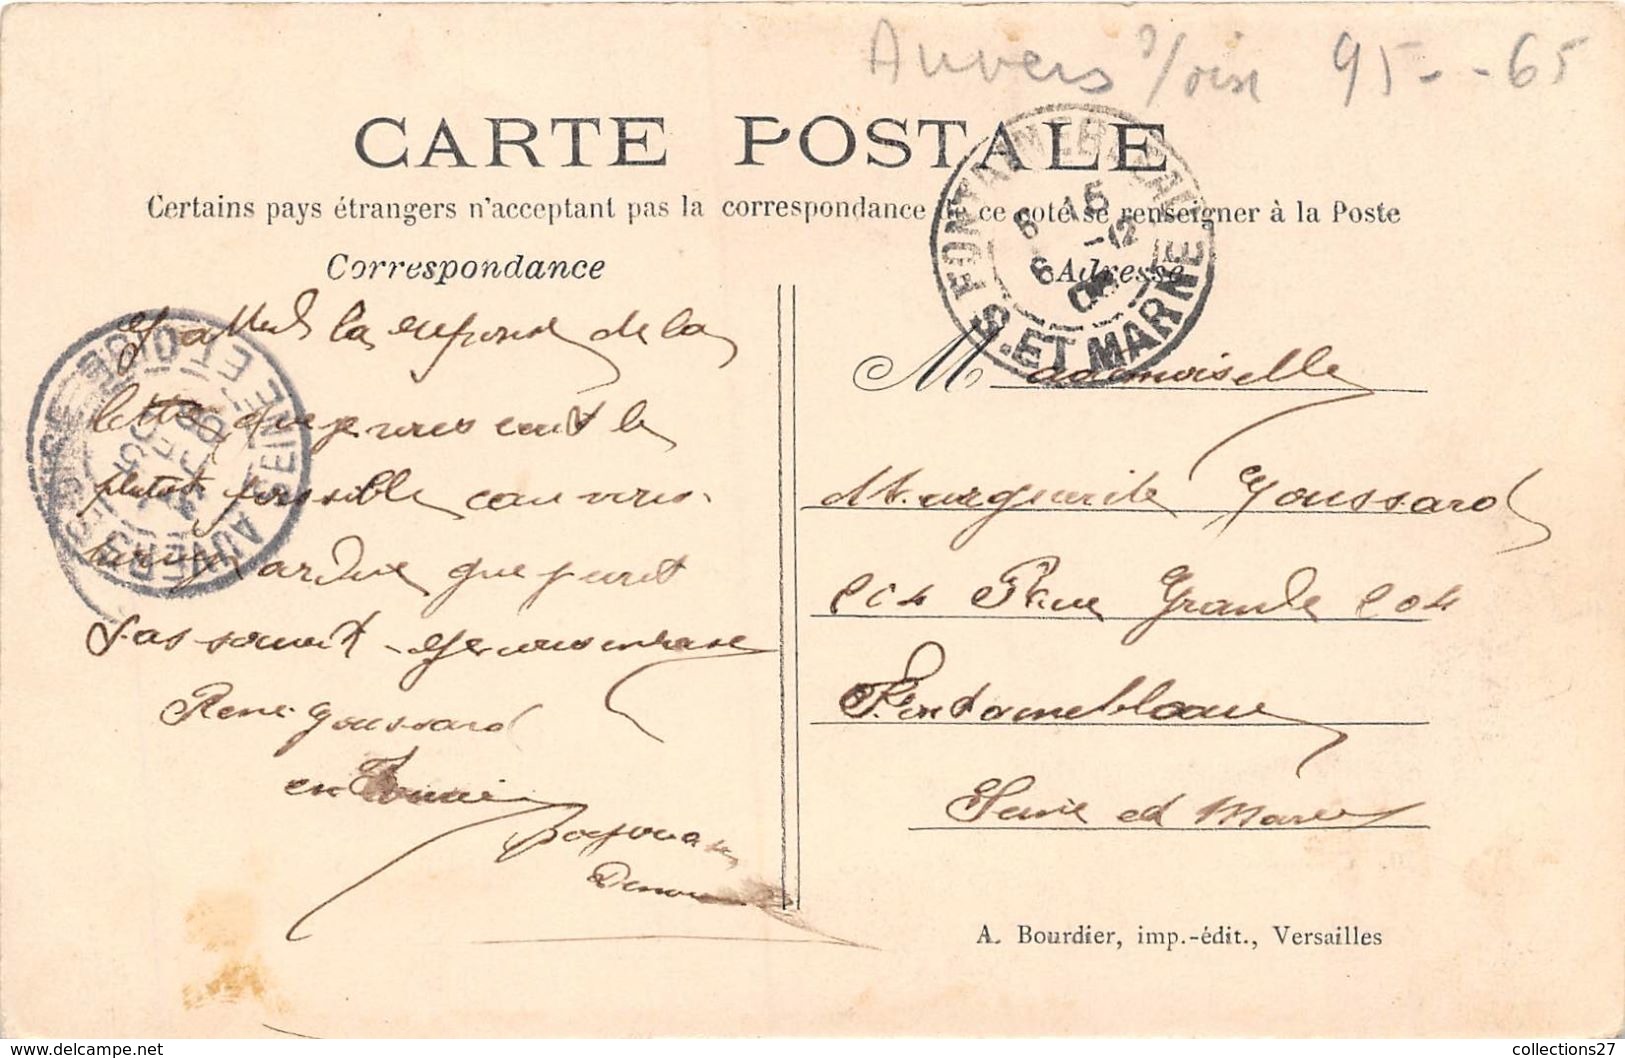 Auvers s/oise 95 - - 65
CARTE POSTALE
Certains pays étrangers n'acceptant pas la correspondance de ce coté se renseigner à la Poste
Correspondance
Adresse
FONTAINEBLEAU
6 15
6 -12
06
S. ET MARNE
AUVERS-S-OISE
SEINE ET OISE
J'attends la reponse de la
lettre que je vous écrit le
plutot possible car vous
que
pas souvent. Je vous embrase
René Goussard
en
Mademoiselle
Marguerite Goussard
104 Rue Grande 104
Fontainebleau
Seine et Marne
A. Bourdier, imp.-édit., Versailles
collections27